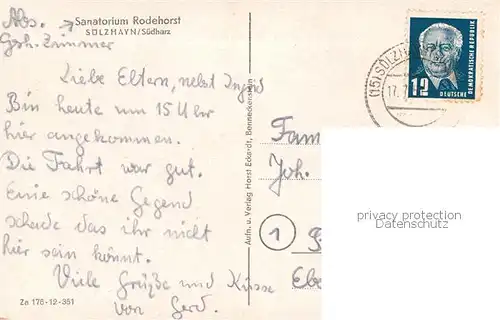 Abs. →
Sanatorium Rodehorst
SÜLZHAYN/Südharz
Liebe Eltern, nebst Ingrid
Bin heute um 15 Uhr
hier angekommen.
Die Fahrt war gut.
Eine schöne Gegend
schade das ihr nicht
hier sein könnt.
Viele Grüße und Küsse
von Gerd.
Za 176-12-351
Aufn. u. Verlag Horst Eckardt, Benneckenstein
(15) SÜLZH
17.
12
DEUTSCHE
DEMOKRATISCHE REPUBLIK
Fam
Joh.
1
Ebe
privacy protection
Datenschutz